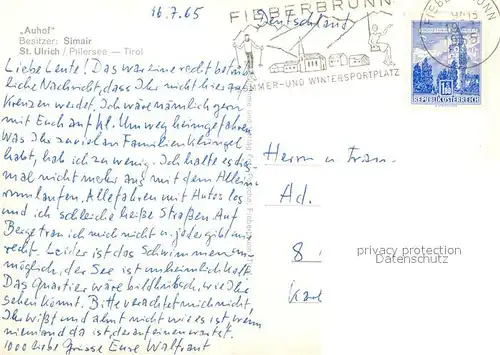 16.7.65
Deutschland
„Auhof"
Besitzer: Simair
St. Ulrich / Pillersee — Tirol
FIEBERBRUNN
SOMMER- UND WINTERSPORTPLATZ
REPUBLIK ÖSTERREICH
Liebe Leute! Das war eine recht betrüb-
liche Nachricht, dass Ihr nicht hier auf-
kreuzen werdet. Ich wäre nämlich gern
mit Euch auf kl. Umweg heimgefahren.
Was Ihr zuviel an Familienklüngel
habt, hab ich zu wenig. Ich halte es die-
mal nicht mehr aus mit dem Allein-
rumlaufen. Alle fahren mit Autos los
und ich schleiche heiße Straßen. Auf
Berge trau ich mich nicht u. jeder gibt mir
recht. Leider ist das Schwimmen un-
möglich, der See ist unheimlich kalt.
Das Quartier wäre bildhübsch, wie Ihr
sehen könnt. Bitte verachtet mich nicht,
Ihr wißt und ahnt nicht wie es ist wenn
niemand da ist, der auf einen wartet.
1000 liebe Grüsse Eure Waltraut
Herrn u. Frau
Ad.
8
Karl
privacy protection
Datenschutz